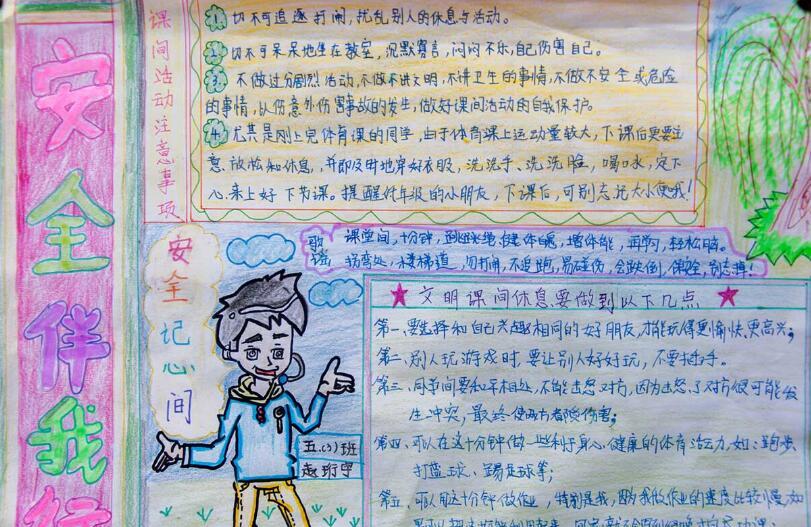 安全伴我行
课间活动注意事项
1、切不可追逐打闹，扰乱别人的休息与活动。
2、切不可呆呆地坐在教室，沉默寡言，闷闷不乐，自己伤害自己。
3、不做过分剧烈活动，不做不讲文明，不讲卫生的事情，不做不安全或危险
的事情，以防意外伤害事故的发生，做好课间活动的自我保护。
4、尤其是刚上完体育课的同学，由于体育课上运动量较大，下课后更要注
意放松和休息，并即及时地穿好衣服，洗洗手、洗洗脸，喝口水，定下
心来上好下节课。提醒低年级的小朋友，下课后，可别忘记大小便哦！
安全记心间
歌谣
课堂间，十分钟，跳跳绳，健体魄，增体能，再学习，轻松嗬。
拐弯处，楼梯道，勿打闹，不追跑，易碰伤，会跌倒，保险，别忘掉！
文明课间休息要做到以下几点
第一、要选择和自己兴趣相同的好朋友，才能玩得更愉快、更高兴；
第二、别人玩游戏时，要让别人好好玩，不要插手。
第三、同学间要和平相处，不能出怨对方，因为出怨了对方便可能发
生冲突，最终使两方者受伤害；
第四、可以在这十分钟做一些利于身心健康的体育活动，如：跑步、
打篮球、踢足球等；
第五、可以用这十分钟做作业，特别是我，因为我做作业的速度比较慢，如
五、(3)班
赵珩宇